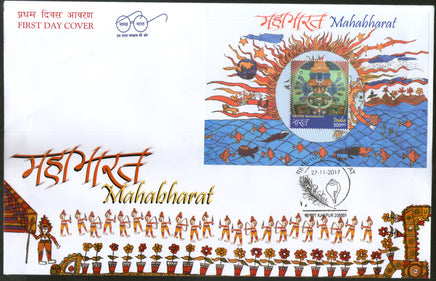 प्रथम दिवस आवरण
FIRST DAY COVER
स्वच्छ भारत
एक कदम स्वच्छता की ओर
महाभारत Mahabharat
भारत India
100.00
27-11-2017
महाभारत
Mahabharat